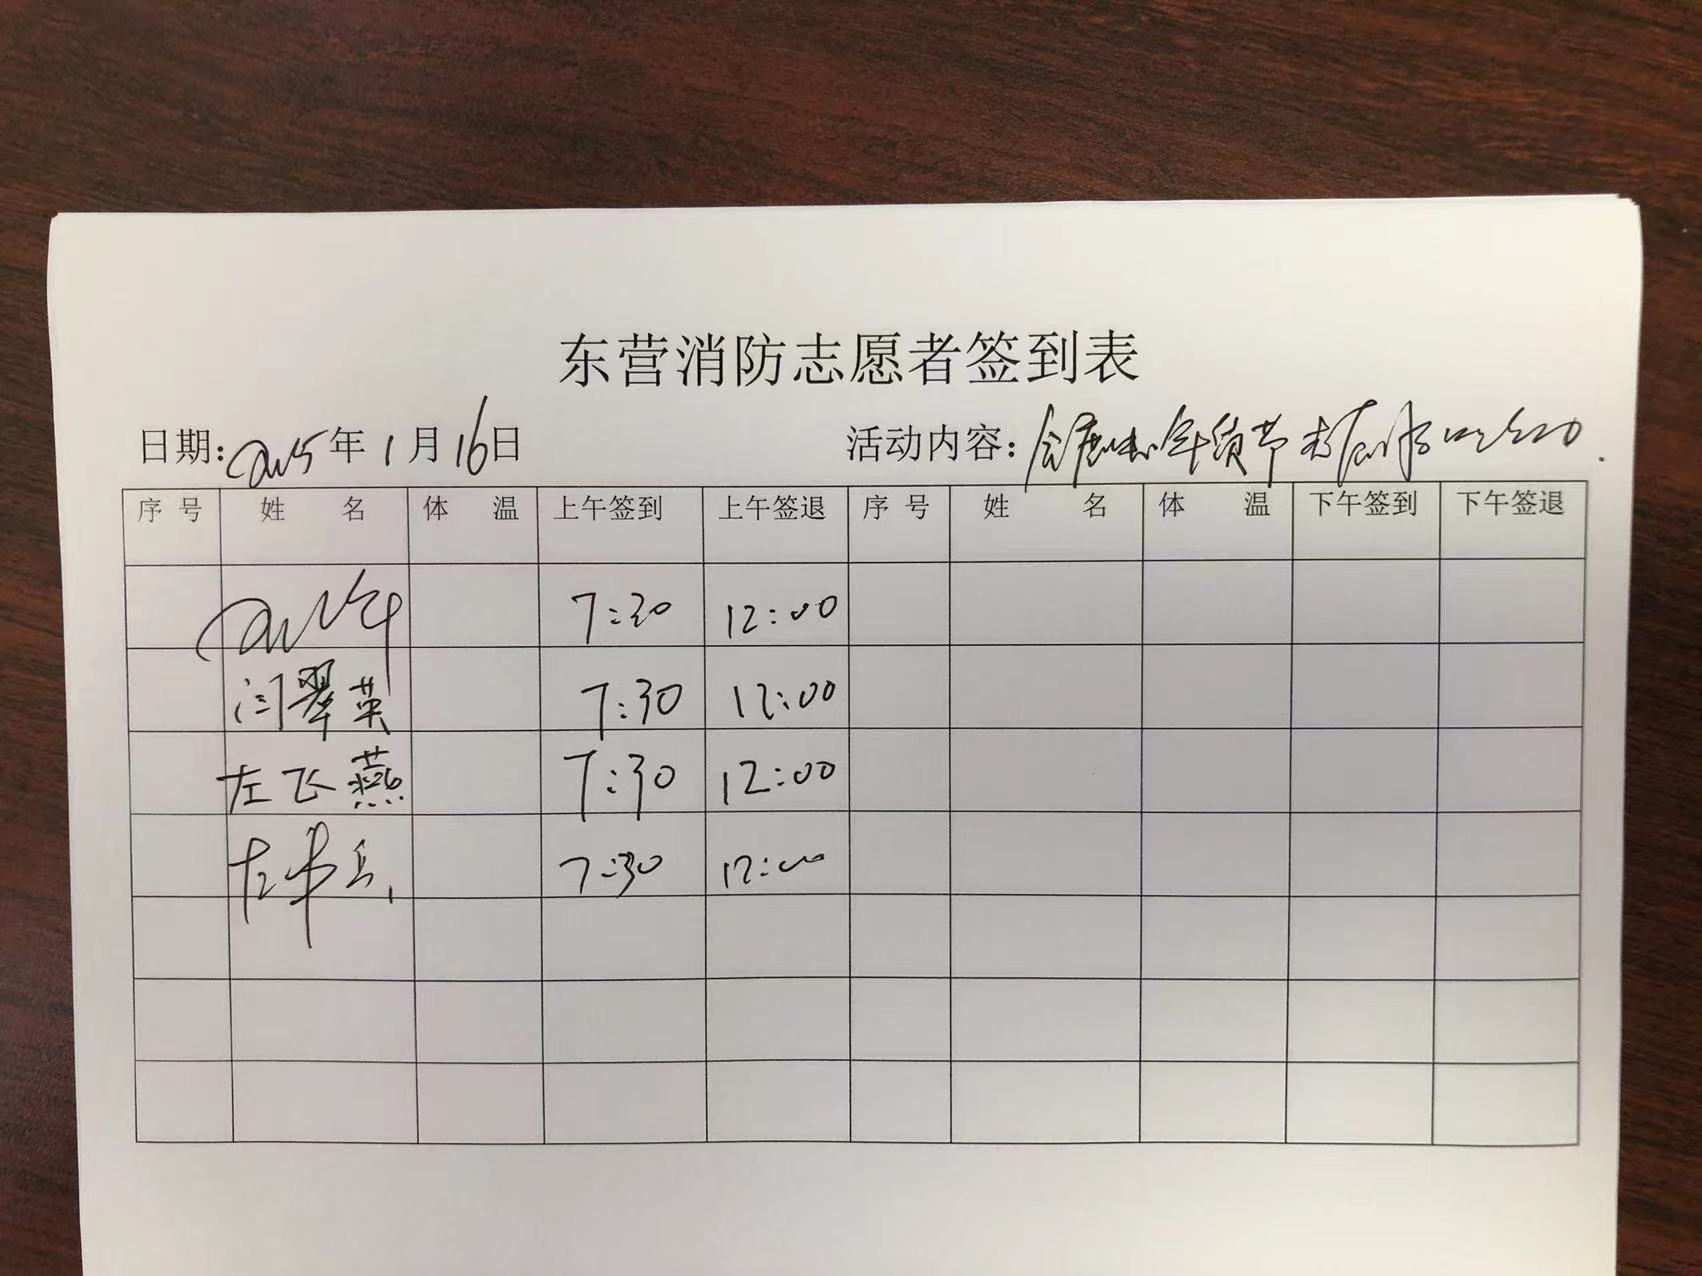 东营消防志愿者签到表
日期:2025年1月16日 活动内容: 年货节
序号 姓名 体温 上午签到 上午签退 序号 姓名 体温 下午签到 下午签退
7:30 12:00
闫翠英 7:30 12:00
左飞燕 7:30 12:00
7:30 12:00